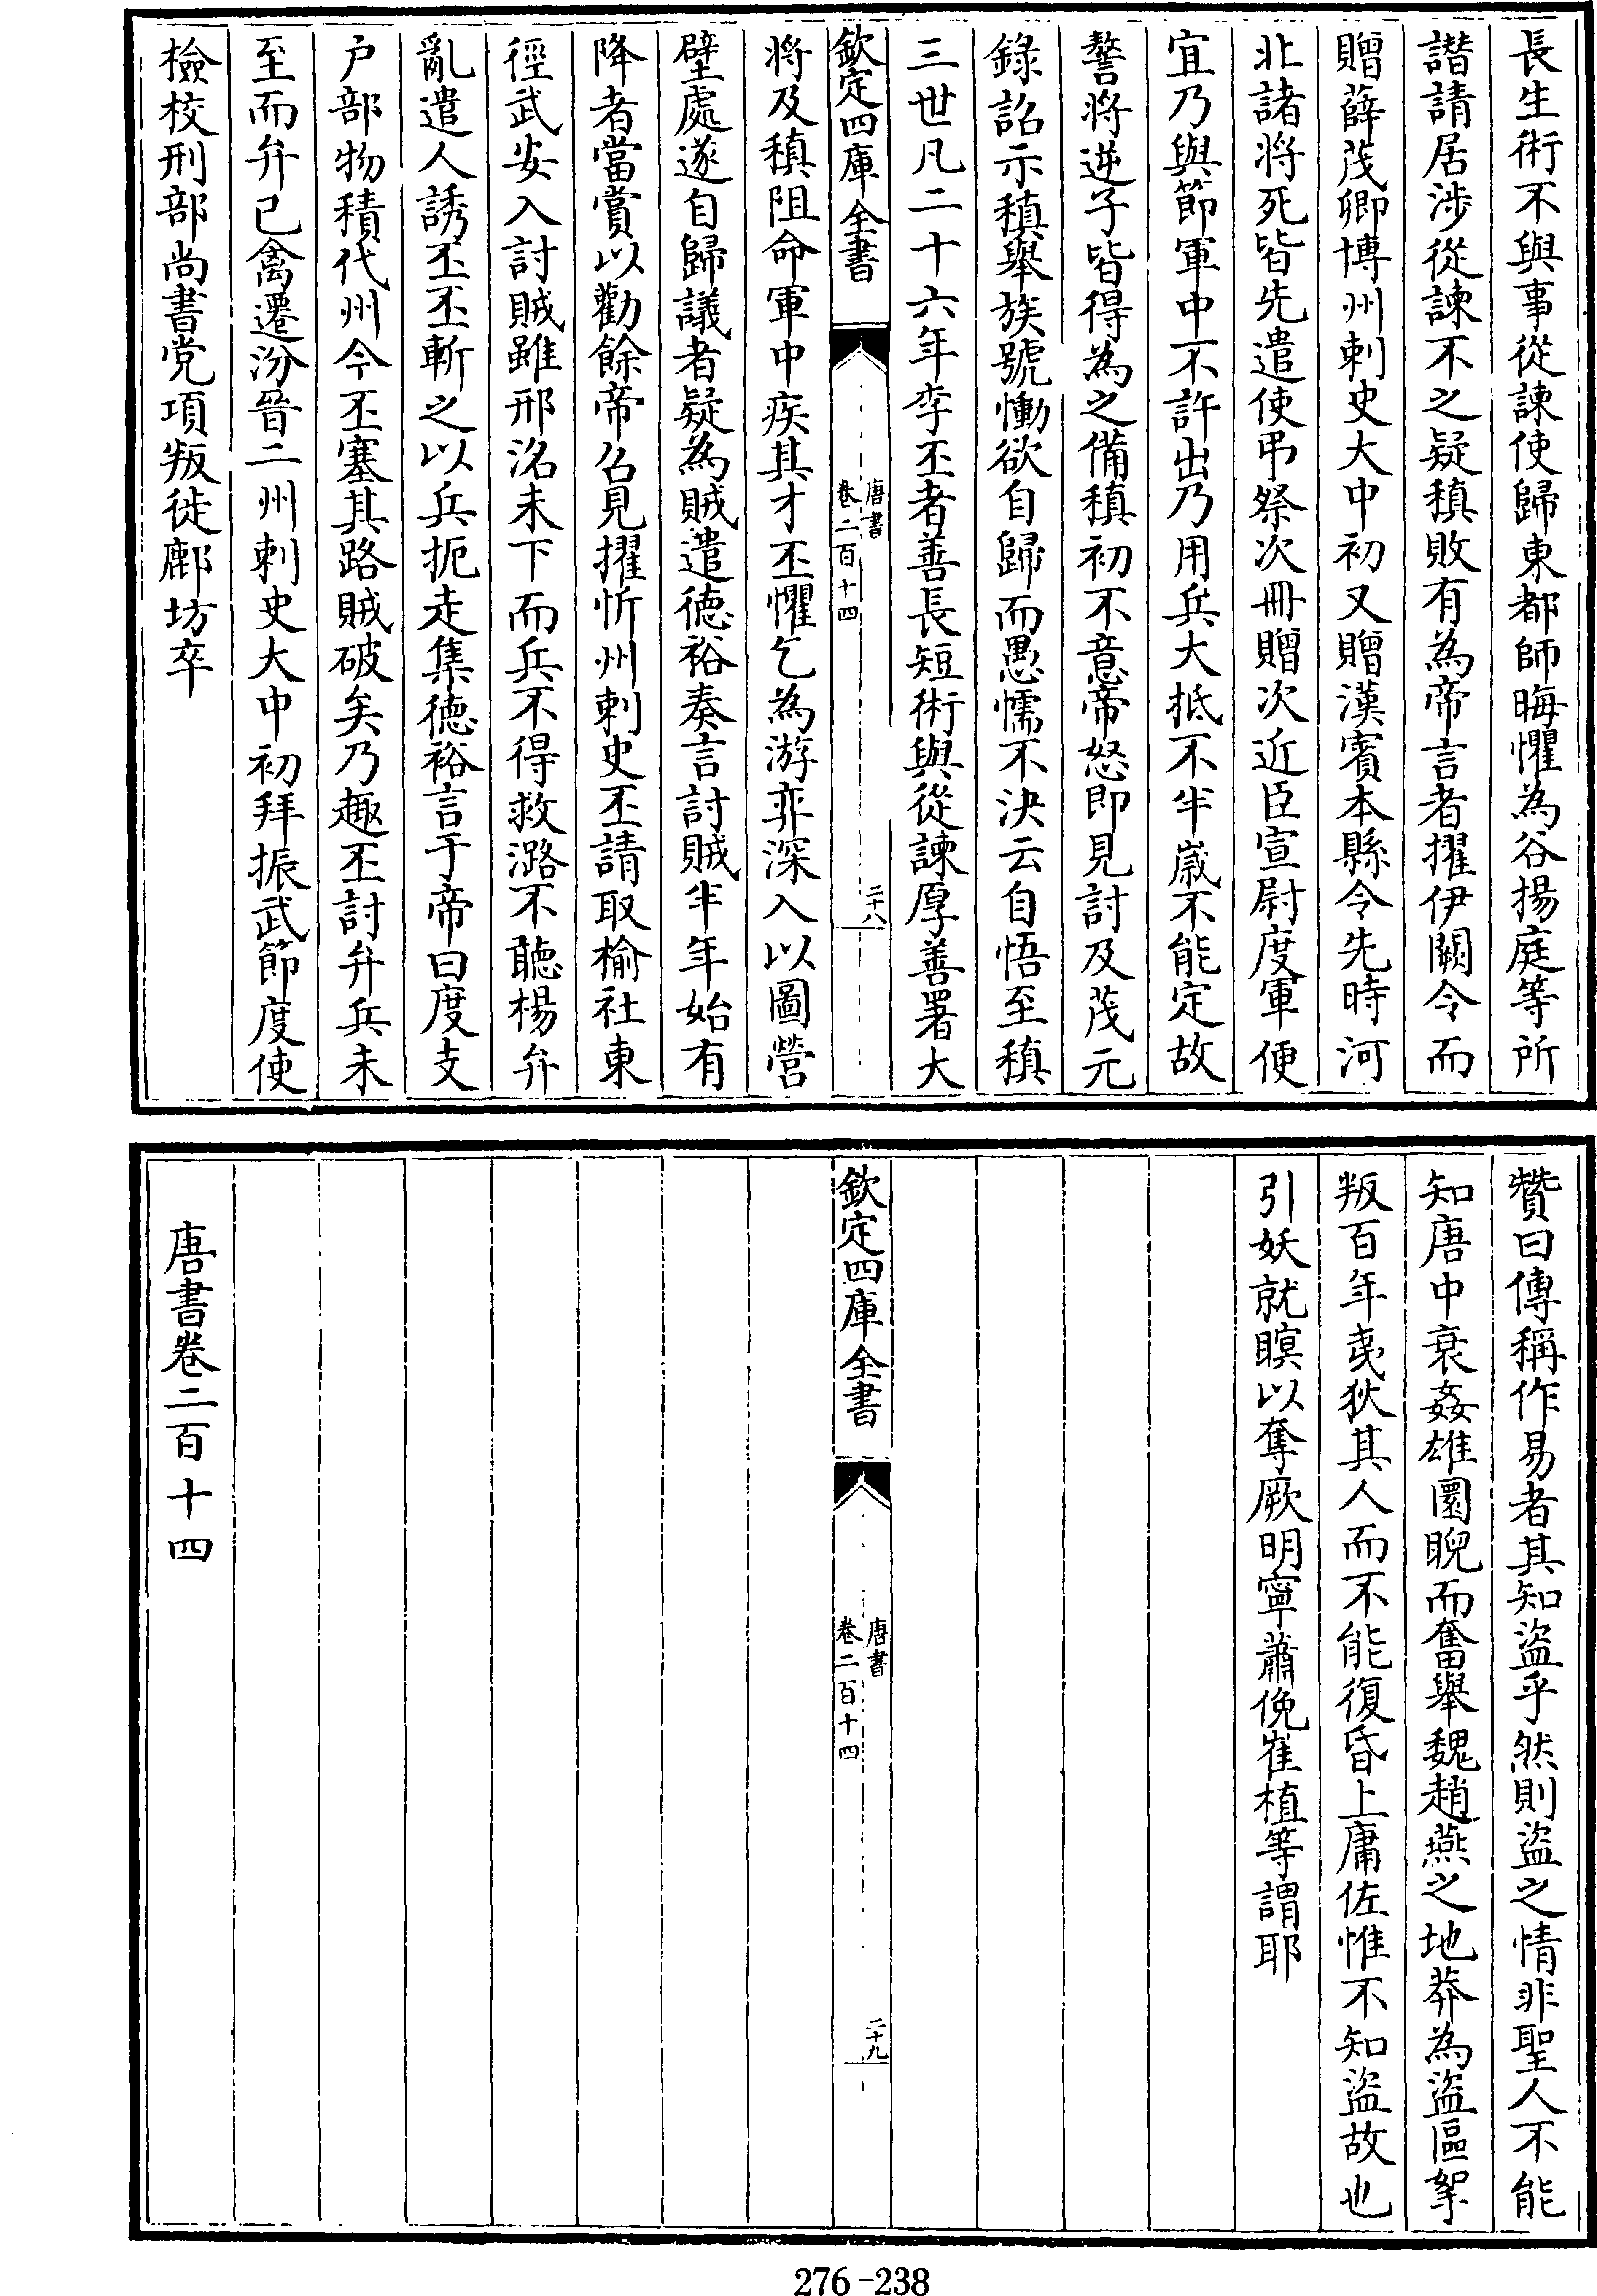 長生術不與事從諫使歸東都師晦懼為谷揚庭等所
譛請居涉從諫不之疑稹敗有為帝言者擢伊闕令而
贈薛茂卿博州刺史大中初又贈漢賓本縣令先時河
北諸將死皆先遣使弔祭次冊贈次近臣宣尉度軍便
宜乃與節軍中不許出乃用兵大抵不半嵗不能定故
謷將逆子皆得為之備稹初不意帝怒即見討及茂元
錄詔示稹舉族號慟欲自歸而愚懦不決云自悟至稹
三世凡二十六年李丕者善長短術與從諫厚善署大
欽定四庫全書
唐書
卷二百十四
二十八
將及稹阻命軍中疾其才丕懼乞為游弈深入以圖營
壁處遂自歸議者疑為賊遣德裕奏言討賊半年始有
降者當賞以勸餘帝召見擢忻州刺史丕請取榆社東
徑武安入討賊雖邢洺未下而兵不得救潞不聽楊弁
亂遣人誘丕丕斬之以兵扼走集德裕言于帝曰度支
户部物積代州今丕塞其路賊破矣乃趣丕討弁兵未
至而弁已禽遷汾晉二州刺史大中初拜振武節度使
檢校刑部尚書党項叛徙鄜坊卒
贊曰傳稱作易者其知盜乎然則盜之情非聖人不能
知唐中衰姦雄圜睨而奮舉魏趙燕之地莽為盜區挐
叛百年夷狄其人而不能復昏上庸佐惟不知盜故也
引妖就瞑以奪厥明寧蕭俛崔植等謂耶
欽定四庫全書
唐書
卷二百十四
二十九
唐書卷二百十四
276-238